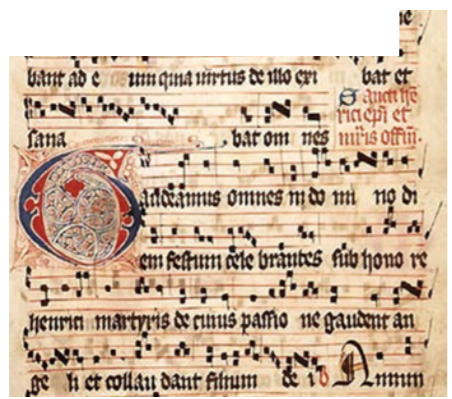 bant ad e um quia virtus de illo exi bat et
sana bat om nes
Sancti hē
rici epi et
mris offm.
Gaudeamus omnes in do mi no di
em festum cele brantes sub hono re
henrici martyris de cuius passio ne gaudent an
ge li et collau dant filium de i Annun